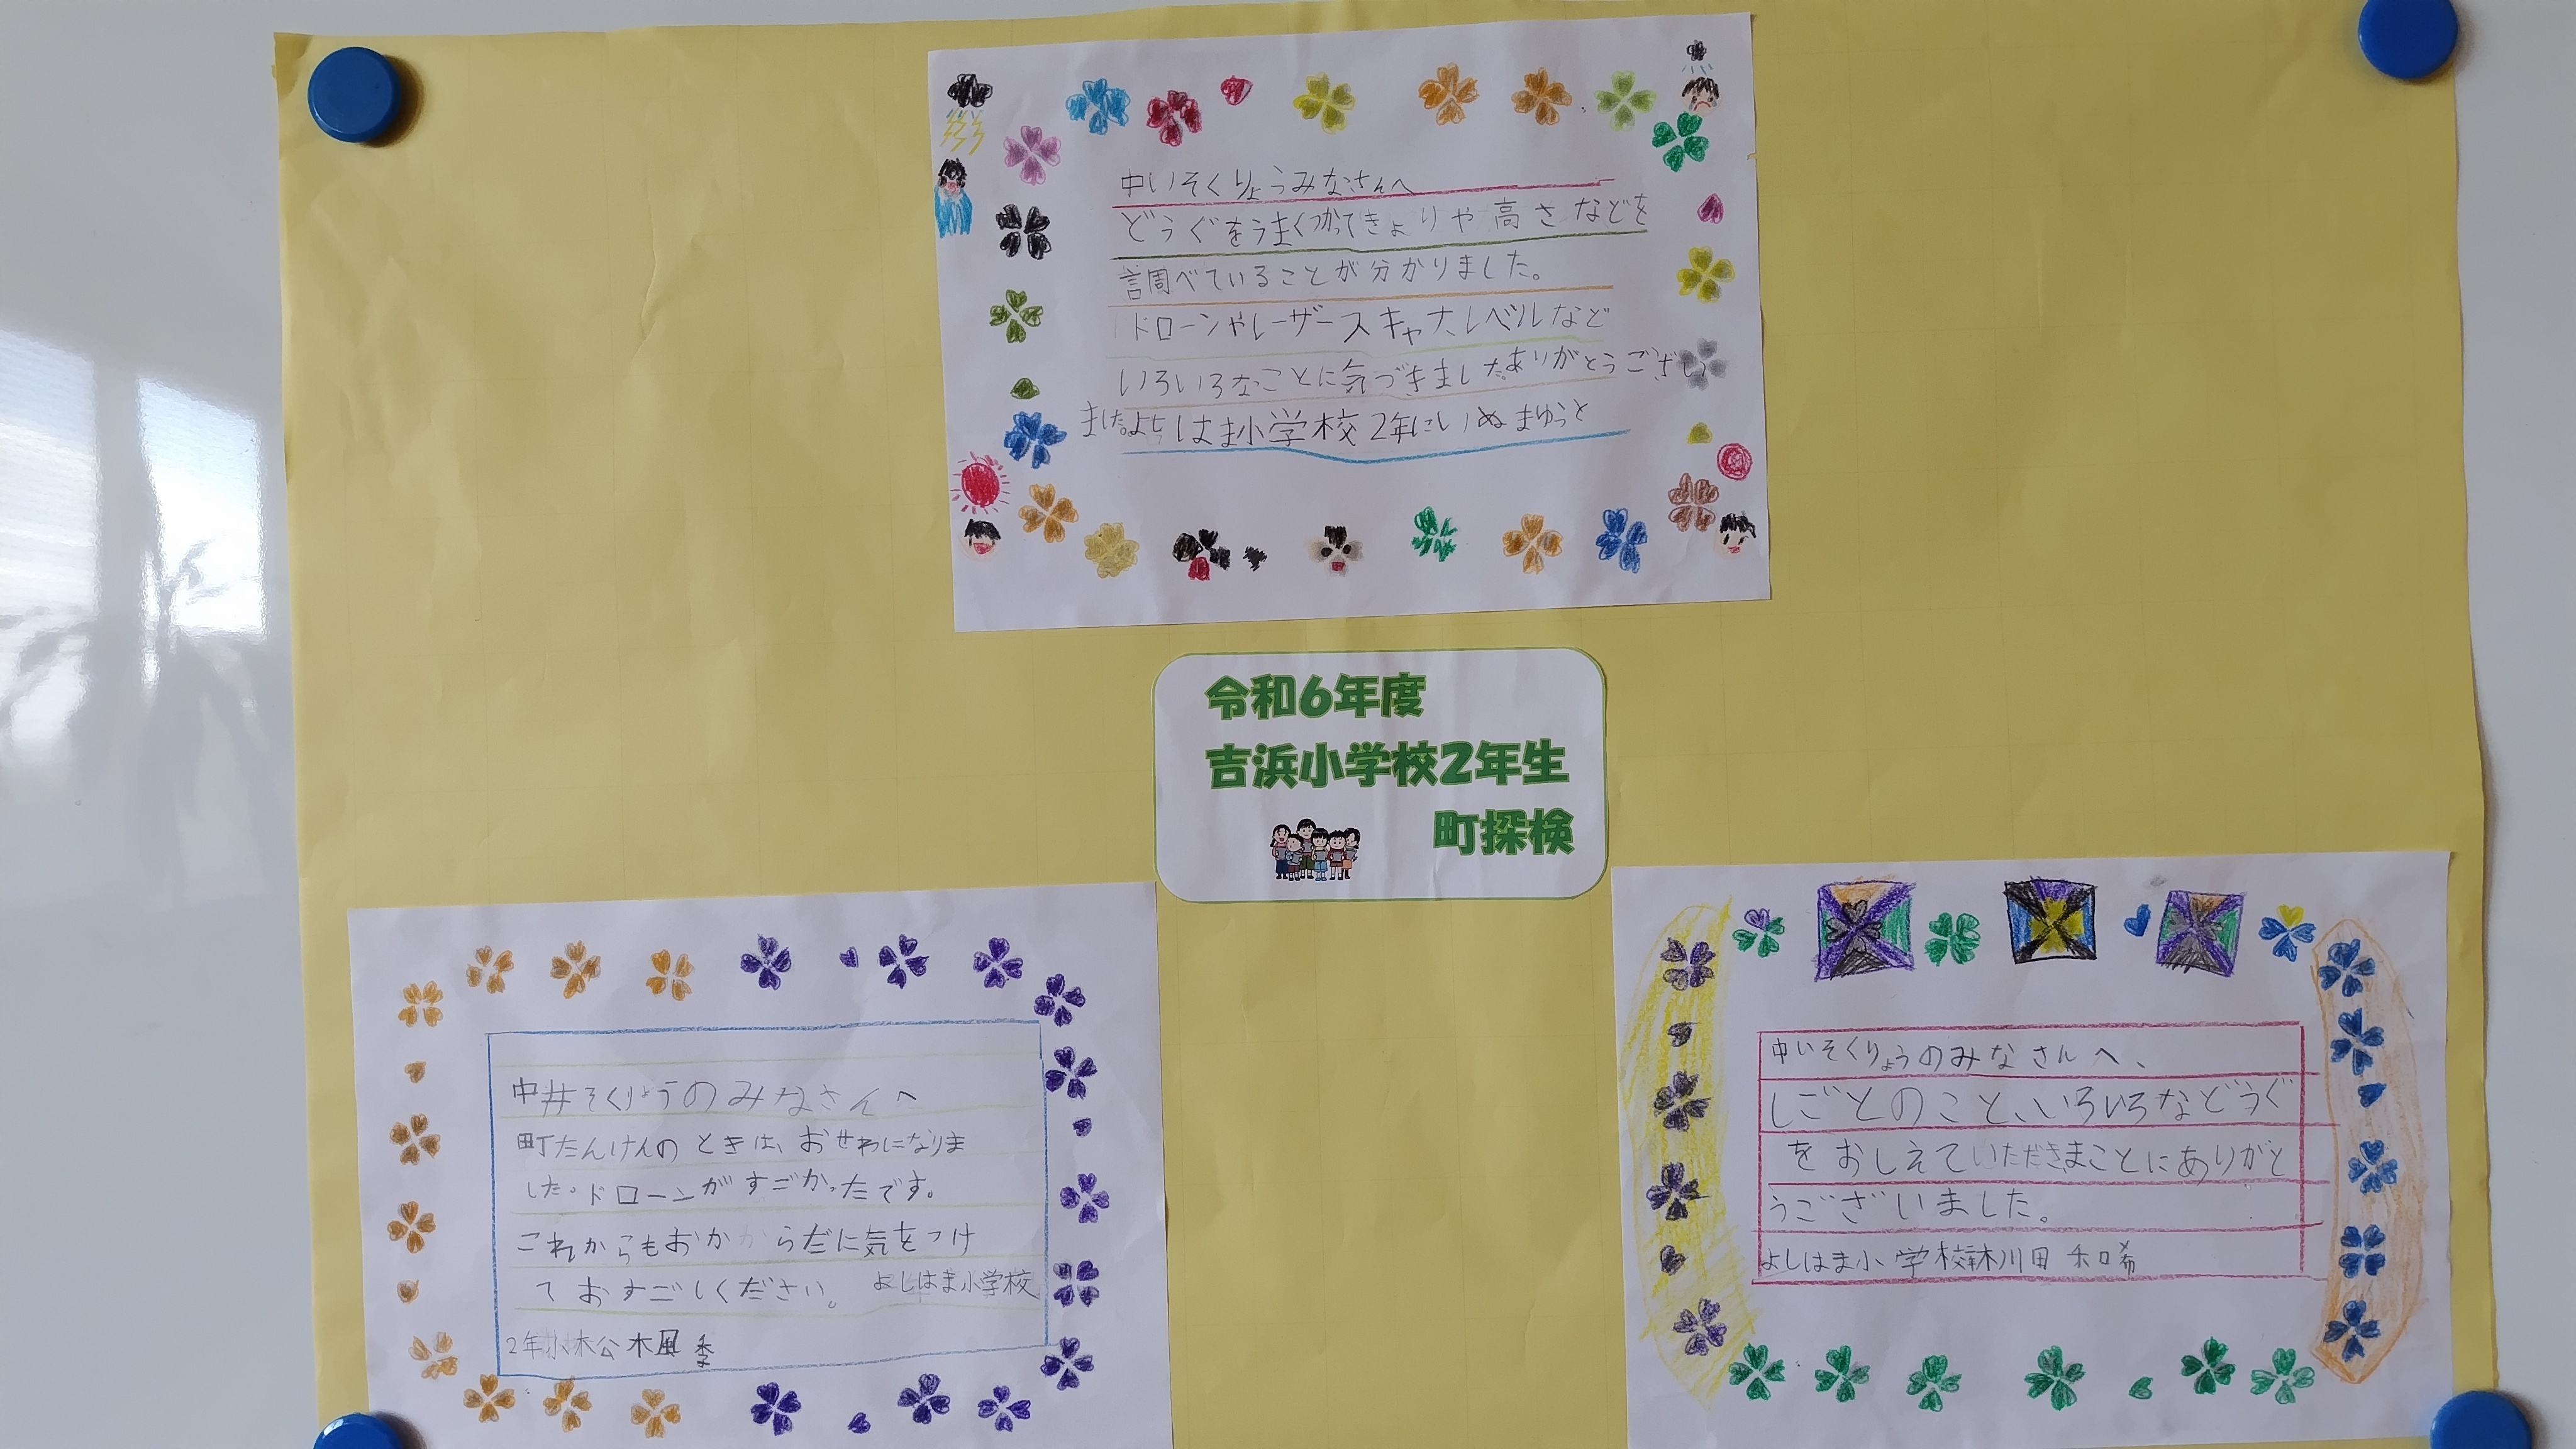 中いそくりょうみなさんへ
どうぐをうまくつかってきょりや高さなどを
調べていることが分かりました。
ドローンやレーザースキャナ、レベルなど
いろいろなことに気づきましたありがとうござい
ました。よしはま小学校2年にいぬまゆうと
令和6年度
吉浜小学校2年生
町探検
中井そくりょうのみなさんへ
町たんけんのときは、おせわになりま
した。ドローンがすごかったです。
これからもおからだに気をつけ
ておすごしください。よしはま小学校
2年小松 季
中いそくりょうのみなさんへ、
しごとのこと、いろいろなどうぐ
をおしえていただきまことにありがと
うございました。
よしはま小学校 川田 和希